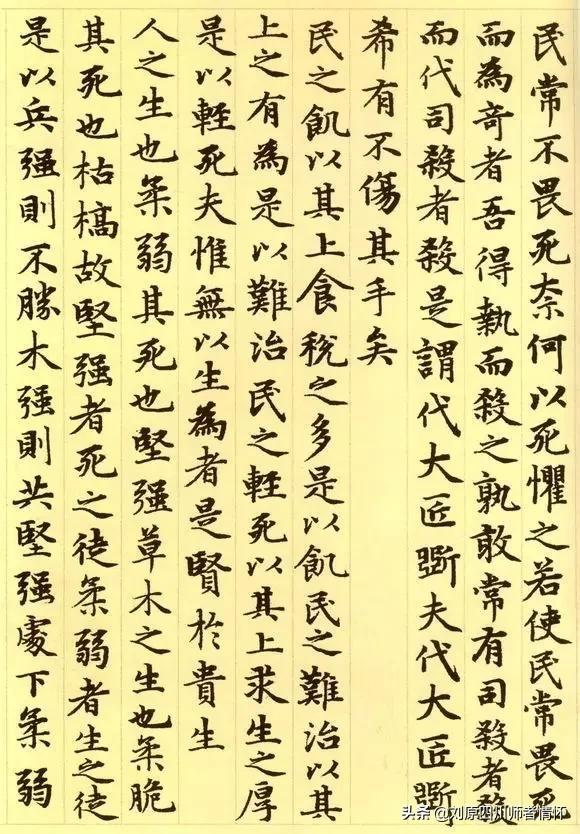 民常不畏死柰何以死懼之若使民常畏死
而為奇者吾得執而殺之孰敢常有司殺者殺
而代司殺者殺是謂代大匠斵夫代大匠斵
希有不傷其手矣
民之飢以其上食稅之多是以飢民之難治以其
上之有為是以難治民之輕死以其上求生之厚
是以輕死夫惟無以生為者是賢於貴生
人之生也柔弱其死也堅强草木之生也柔脆
其死也枯槁故堅强者死之徒柔弱者生之徒
是以兵强則不勝木强則共堅强處下柔弱
头条 @刘原四川师者情怀